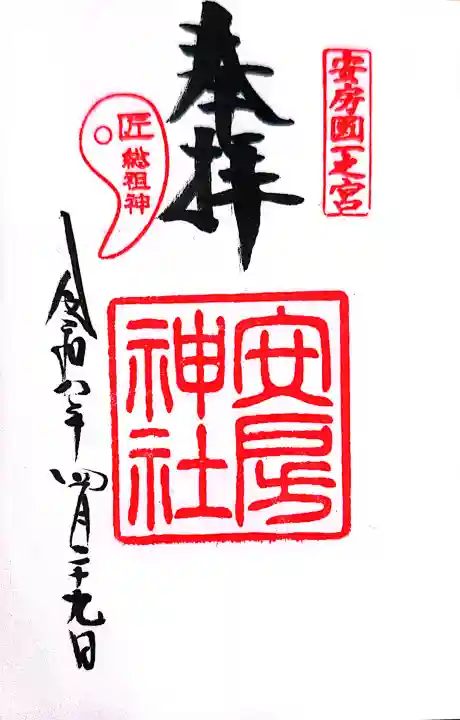 安房國一之宮
奉拝
匠
総祖神
安房
神社
令和八年四月二十九日